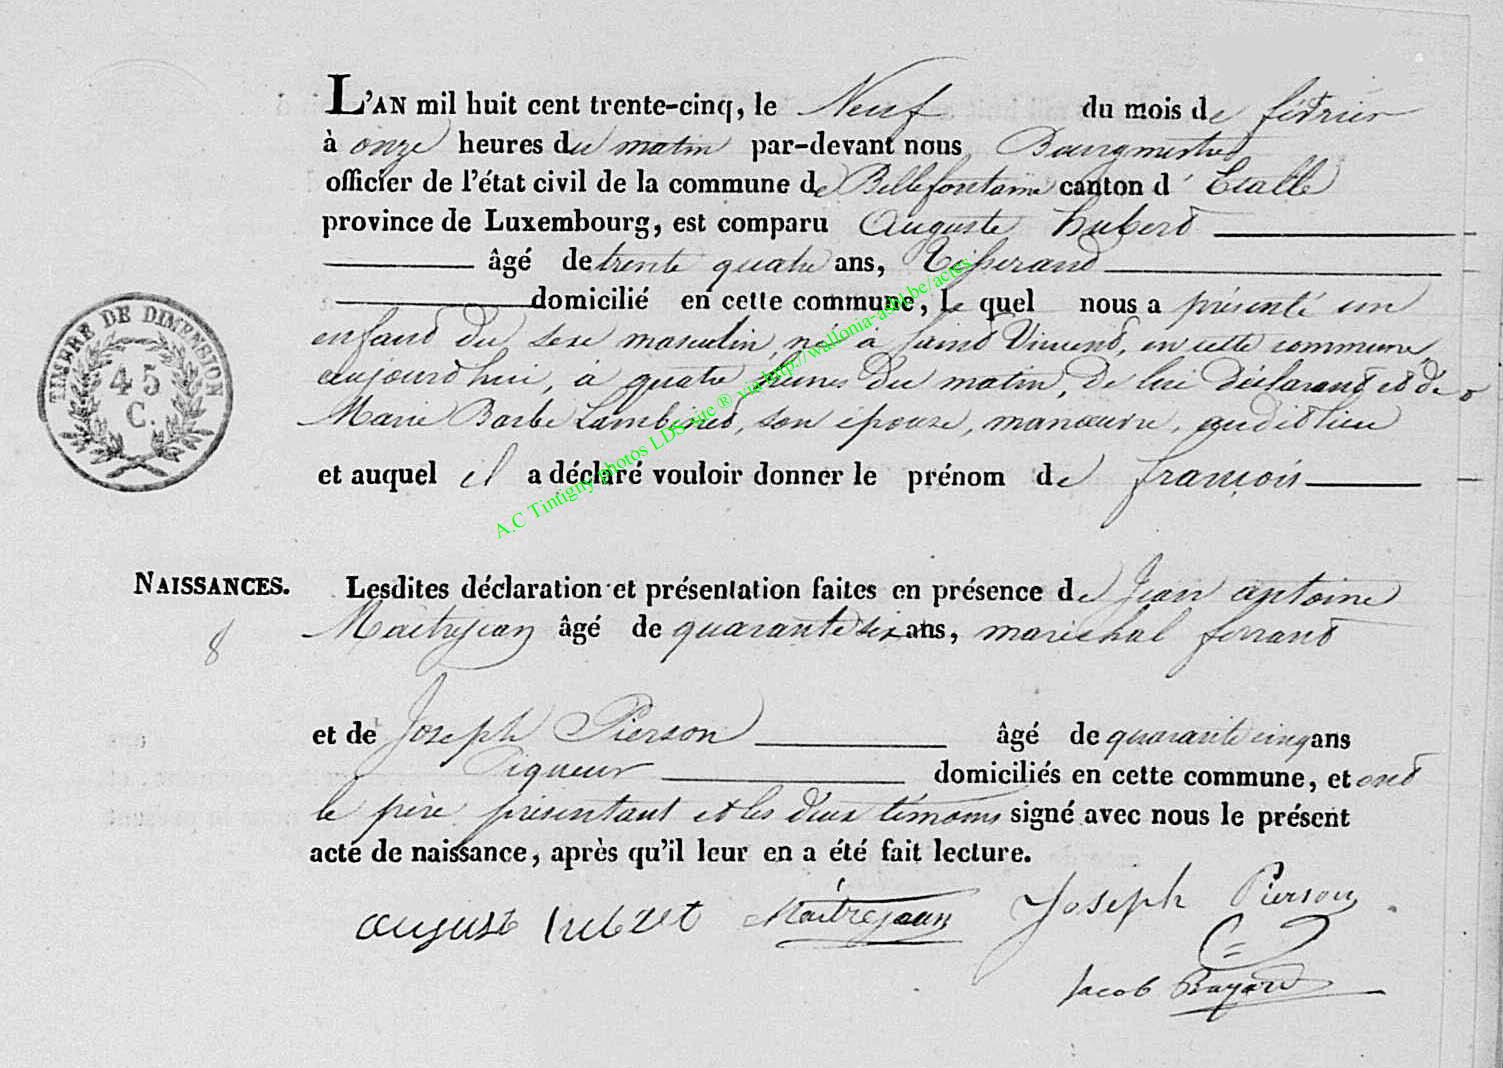 L'AN mil huit cent trente-cinq, le Neuf du mois de février
à onze heures du matin par-devant nous Bourgmestre
officier de l'état civil de la commune de Bellefontaine canton d'Etalle
province de Luxembourg, est comparu Auguste hubert
âgé de trente quatre ans, Tisserand
domicilié en cette commune, Le quel nous a présenté un
enfant du sexe masculin, né à Saint Vincent, en cette commune,
aujourd'hui, à quatre heures du matin, de lui déclarant et de
Marie Barbe Lambinet, son épouse, manoeuvre, audit lieu
et auquel il a déclaré vouloir donner le prénom de françois
TIMBRE DE DIMENSION
45
C.
A.C Tintigny photos LDS site ® via http://wallonia-asbl.be/actes
NAISSANCES.
8
Lesdites déclaration et présentation faites en présence de Jean antoine
Maitrejean âgé de quarante six ans, maréchal ferrant
et de Joseph Pierson âgé de quarante cinq ans
Piqueur domiciliés en cette commune, et ont
le père présentant et les deux témoins signé avec nous le présent
acte de naissance, après qu'il leur en a été fait lecture.
auguste hubert Maitrejean Joseph Pierson
Jacob Bayard